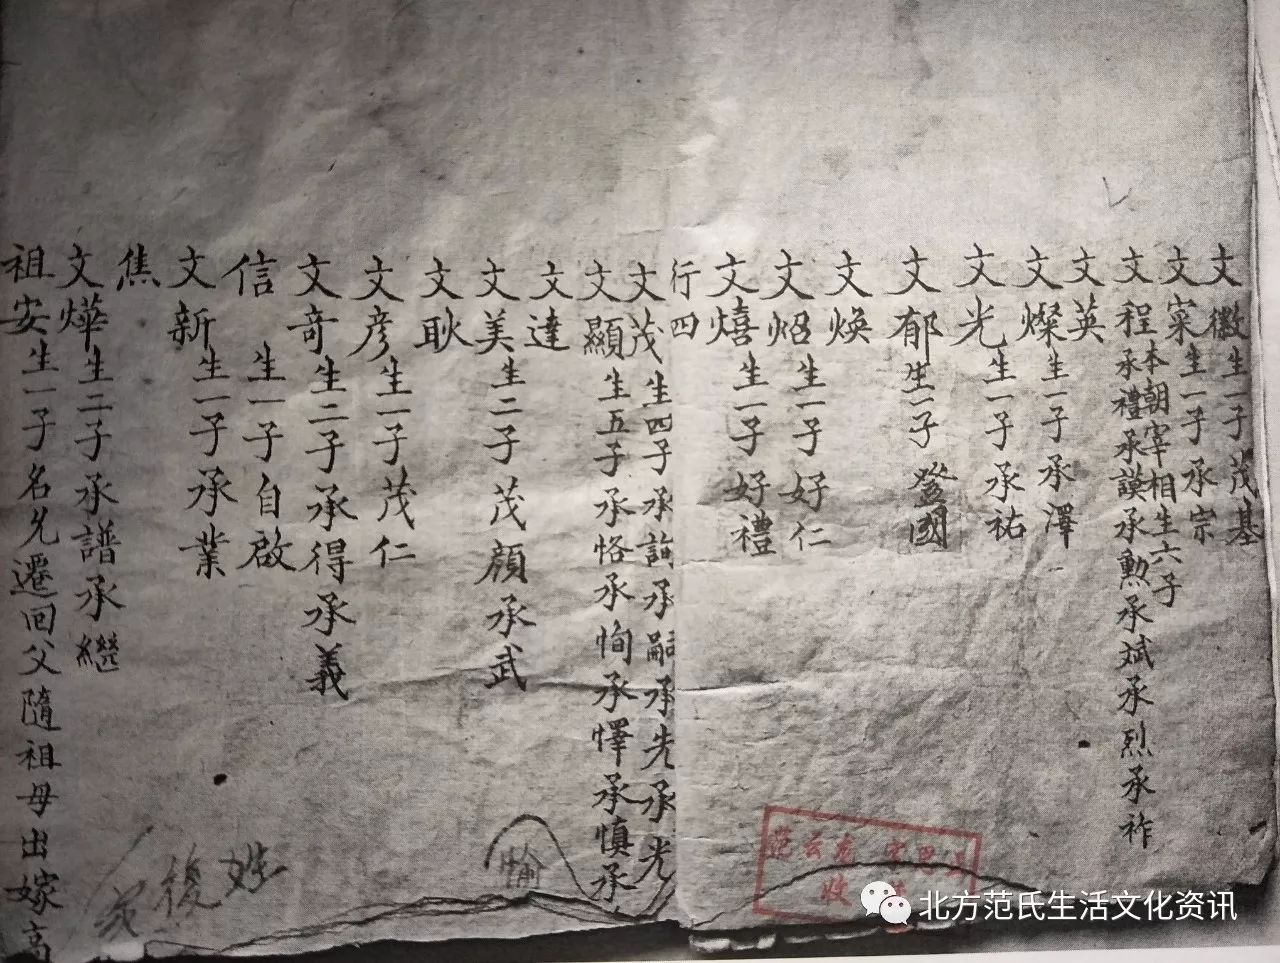 文徽生一子茂基
文寀生一子承宗
文程本朝宰相生六子
承禮承謨承勲承斌承烈承祚
文英
文燦生一子承澤
文光生一子承祐
文郁生一子登國
文焕
文炤生一子好仁
文熺生一子好禮
行四
文茂生四子承詢承嗣承先承光
文顯生五子承恪承恂承懌承慎承
愉
文達
文美生二子茂顔承武
文耿
文彦生一子茂仁
文竒生二子承得承義
信生一子自啟
文新生一子承業
焦
文燁生二子承譜承繼
祖安生一子名允遷回父隨祖母出嫁高
姓後
北方范氏生活文化资讯